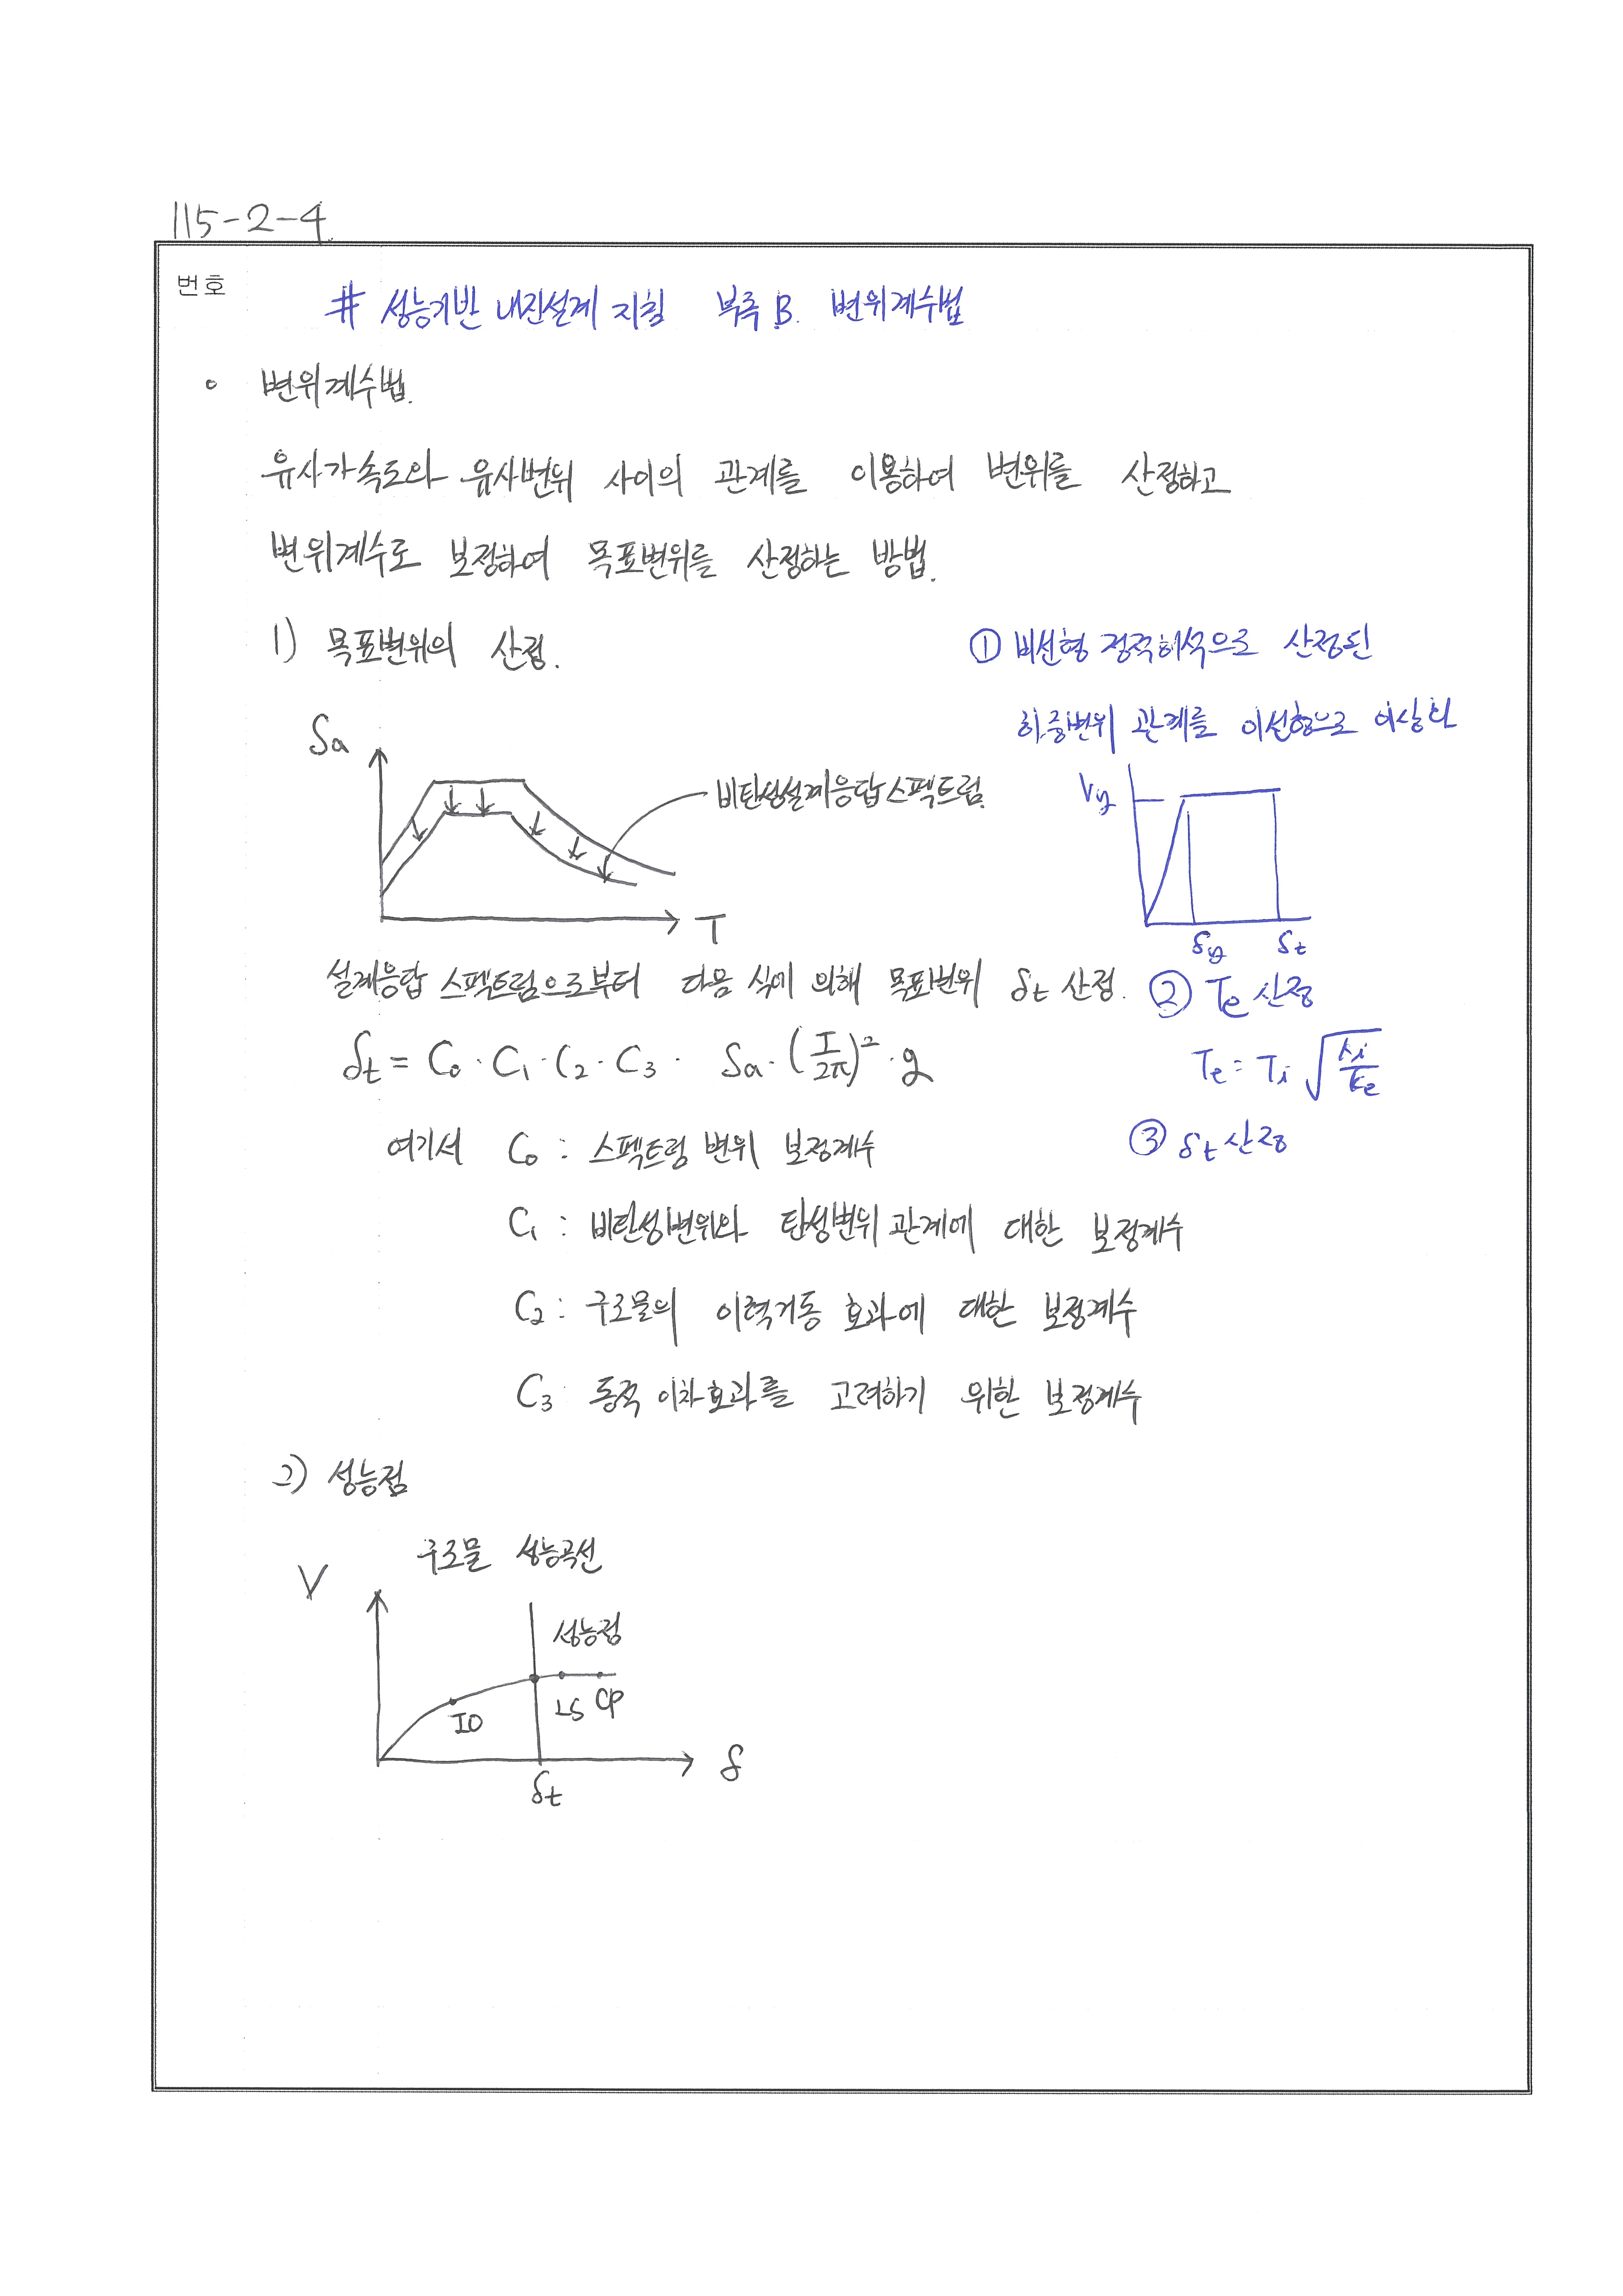 115-2-4.
번호
# 성능기반 내진설계 지침 부록 B. 변위계수법
○ 변위계수법.
유사가속도와 유사변위 사이의 관계를 이용하여 변위를 산정하고
변위계수로 보정하여 목표변위를 산정하는 방법.
1) 목표변위의 산정.
Sa
비탄성설계응답스펙트럼.
T
① 비선형 정적해석으로 산정된
하중변위 관계를 이선형으로 이상화
Vy
δy δt
설계응답 스펙트럼으로부터 다음 식에 의해 목표변위 δt 산정.
② Te 산정
δt = C0 · C1 · C2 · C3 · Sa · (T/2π)² · g
Te = Ti √(Ki/Ke)
③ δt 산정
여기서 C0 : 스펙트럼 변위 보정계수
C1 : 비탄성변위와 탄성변위 관계에 대한 보정계수
C2 : 구조물의 이력거동 효과에 대한 보정계수
C3 : 동적 이차효과를 고려하기 위한 보정계수
2) 성능점
구조물 성능곡선
V
성능점
IO LS CP
δ
δt